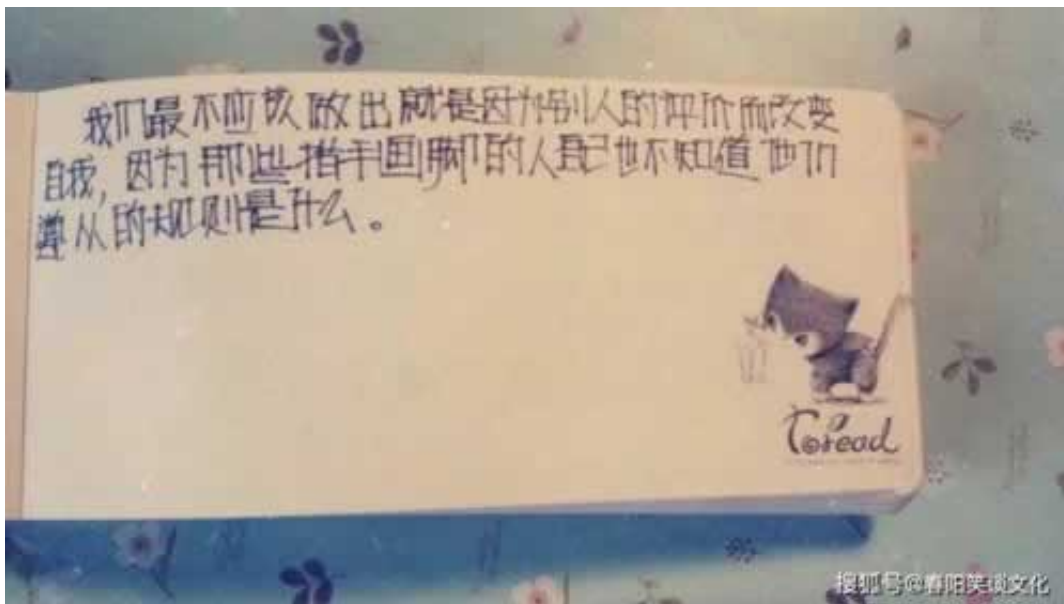 我们最不应该做出就是因为别人的评价而改变
自我，因为那些指手画脚的人自己也不知道他们
遵从的规则是什么。
Coread
搜狐号@春阳笑谈文化